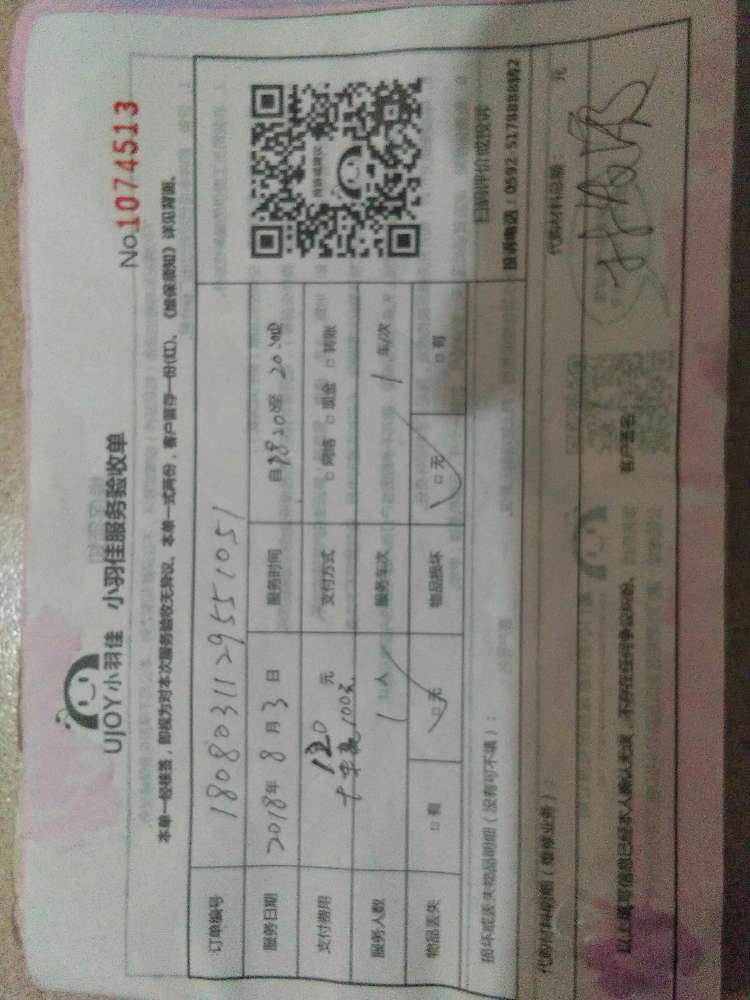 UJOY小羽佳 小羽佳服务验收单
No.1074513
本单一经核签，即视为对本次服务验收无异议。本单一式两份，客户留存一份(红)。《维保须知》详见背面。
订单编号 180803112955 1051
服务日期 2018年 8月 3日 服务时间
支付费用 120 元 支付方式 □网络 □现金 □转账
服务人数 1人 服务车次 1 车/次
物品丢失 □有 □无 物品损坏 □无 □有
损坏或丢失物品明细（没有可不填）：
扫码评价或投诉
投诉电话：0592-5178888转2
代购材料明细（维修业务）：
代购材料总额： 元
以上填写信息已经本人确认无误，不存在任何争议纠纷。
客户签名